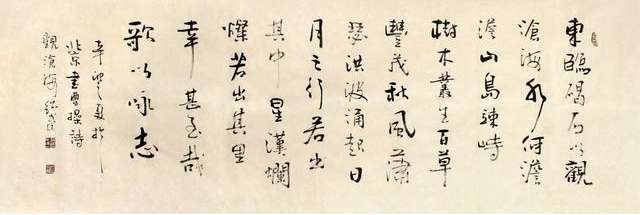 東臨碣石以觀
滄海水何澹
澹山島竦峙
樹木叢生百草
豐茂秋風蕭
瑟洪波涌起日
月之行若出
其中星漢爛
燦若出其里
幸甚至哉
歌以咏志
辛卯夏於
書曹操詩
觀滄海